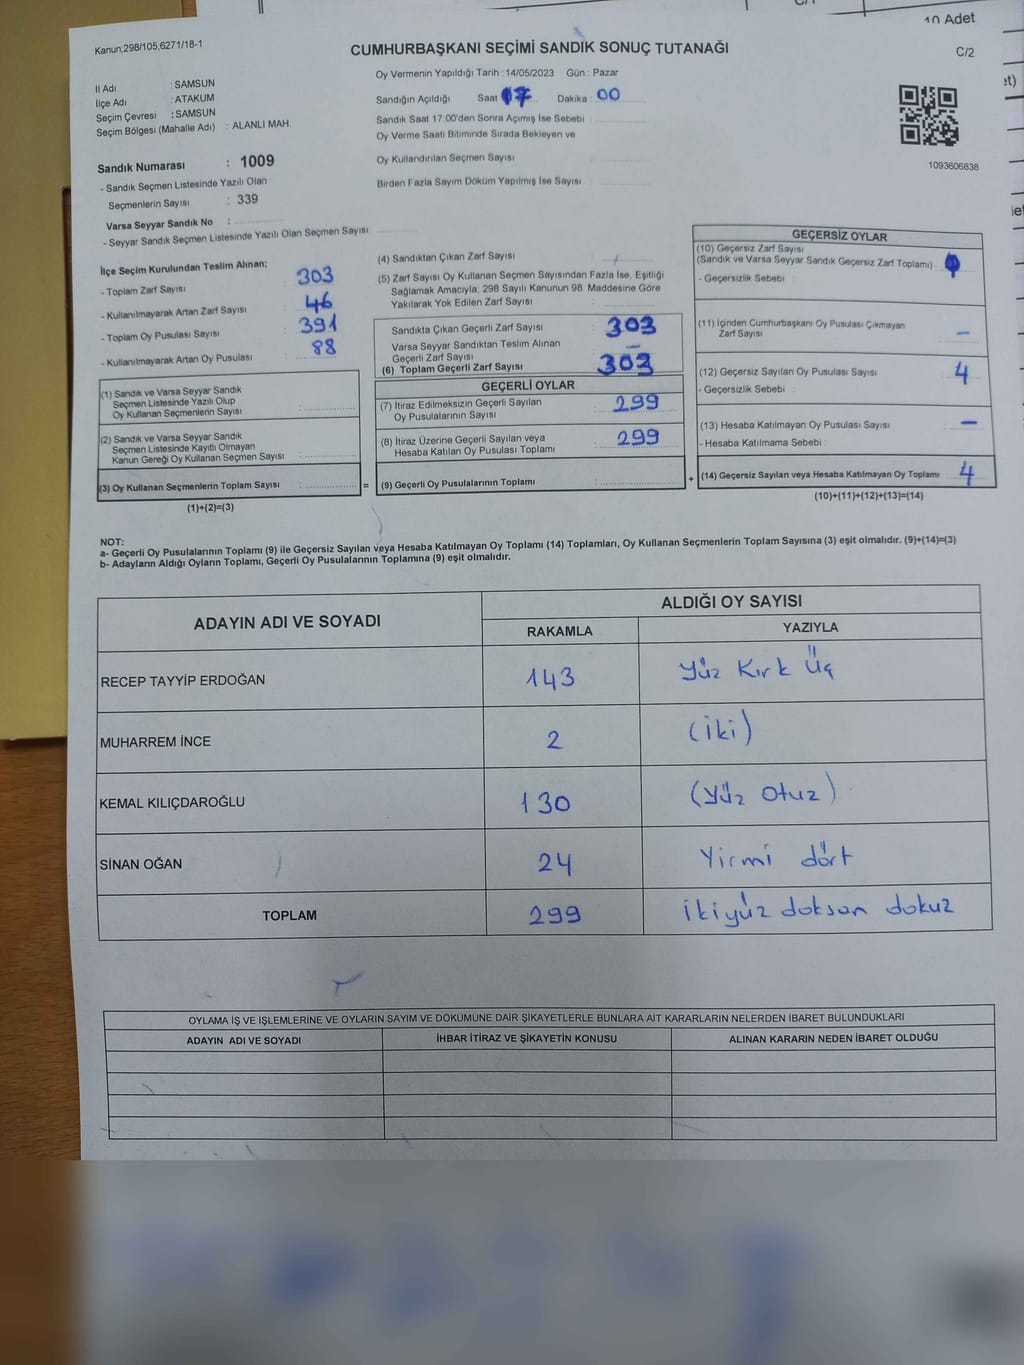 10 Adet
Kanun,298/105,6271/18-1
CUMHURBAŞKANI SEÇİMİ SANDIK SONUÇ TUTANAĞI
C/2
İl Adı : SAMSUN
İlçe Adı : ATAKUM
Seçim Çevresi : SAMSUN
Seçim Bölgesi (Mahalle Adı) : ALANLI MAH.
Oy Vermenin Yapıldığı Tarih : 14/05/2023 Gün : Pazar
Sandığın Açıldığı Saat 17 Dakika : 00
Sandık Saat 17:00'den Sonra Açımış İse Sebebi
Oy Verme Saati Bitiminde Sırada Bekleyen ve
Oy Kullandırılan Seçmen Sayısı
Birden Fazla Sayım Döküm Yapılmış İse Sayısı
1093606838
Sandık Numarası : 1009
- Sandık Seçmen Listesinde Yazılı Olan
Seçmenlerin Sayısı : 339
Varsa Seyyar Sandık No :
- Seyyar Sandık Seçmen Listesinde Yazılı Olan Seçmen Sayısı
İlçe Seçim Kurulundan Teslim Alınan;
- Toplam Zarf Sayısı : 303
- Kullanılmayarak Artan Zarf Sayısı : 46
- Toplam Oy Pusulası Sayısı : 391
- Kullanılmayarak Artan Oy Pusulası : 88
(1) Sandık ve Varsa Seyyar Sandık
Seçmen Listesinde Yazılı Olup
Oy Kullanan Seçmenlerin Sayısı :
(2) Sandık ve Varsa Seyyar Sandık
Seçmen Listesinde Kayıtlı Olmayan
Kanun Gereği Oy Kullanan Seçmen Sayısı :
(3) Oy Kullanan Seçmenlerin Toplam Sayısı : =
(1)+(2)=(3)
(4) Sandıktan Çıkan Zarf Sayısı :
(5) Zarf Sayısı Oy Kullanan Seçmen Sayısından Fazla İse, Eşitliği
Sağlamak Amacıyla; 298 Sayılı Kanunun 98. Maddesine Göre
Yakılarak Yok Edilen Zarf Sayısı :
Sandıkta Çıkan Geçerli Zarf Sayısı : 303
Varsa Seyyar Sandıktan Teslim Alınan
Geçerli Zarf Sayısı : –
(6) Toplam Geçerli Zarf Sayısı : 303
GEÇERLİ OYLAR
(7) İtiraz Edilmeksizin Geçerli Sayılan
Oy Pusulalarının Sayısı : 299
(8) İtiraz Üzerine Geçerli Sayılan veya
Hesaba Katılan Oy Pusulası Toplamı : 299
(9) Geçerli Oy Pusulalarının Toplamı : +
GEÇERSİZ OYLAR
(10) Geçersiz Zarf Sayısı
(Sandık ve Varsa Seyyar Sandık Geçersiz Zarf Toplamı)
- Geçersizlik Sebebi :
(11) İçinden Cumhurbaşkanı Oy Pusulası Çıkmayan
Zarf Sayısı –
(12) Geçersiz Sayılan Oy Pusulası Sayısı : 4
- Geçersizlik Sebebi :
(13) Hesaba Katılmayan Oy Pusulası Sayısı : –
- Hesaba Katılmama Sebebi :
(14) Geçersiz Sayılan veya Hesaba Katılmayan Oy Toplamı : 4
(10)+(11)+(12)+(13)=(14)
NOT:
a- Geçerli Oy Pusulalarının Toplamı (9) ile Geçersiz Sayılan veya Hesaba Katılmayan Oy Toplamı (14) Toplamları, Oy Kullanan Seçmenlerin Toplam Sayısına (3) eşit olmalıdır. (9)+(14)=(3)
b- Adayların Aldığı Oyların Toplamı, Geçerli Oy Pusulalarının Toplamına (9) eşit olmalıdır.
ADAYIN ADI VE SOYADI
ALDIĞI OY SAYISI
RAKAMLA YAZIYLA
RECEP TAYYİP ERDOĞAN 143 Yüz Kırk Üç
MUHARREM İNCE 2 (iki)
KEMAL KILIÇDAROĞLU 130 (yüz otuz)
SİNAN OĞAN 24 Yirmi dört
TOPLAM 299 ikiyüz doksan dokuz
OYLAMA İŞ VE İŞLEMLERİNE VE OYLARIN SAYIM VE DÖKÜMÜNE DAİR ŞİKAYETLERLE BUNLARA AİT KARARLARIN NELERDEN İBARET BULUNDUKLARI
ADAYIN ADI VE SOYADI İHBAR İTİRAZ VE ŞİKAYETİN KONUSU ALINAN KARARIN NEDEN İBARET OLDUĞU